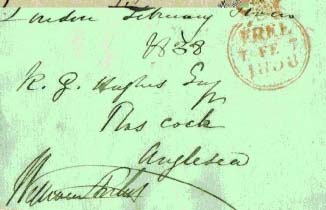 London February Seven
1838
R. G. Hughes Esq
Plas coch
Anglesea
FREE
7 FE 7
1838